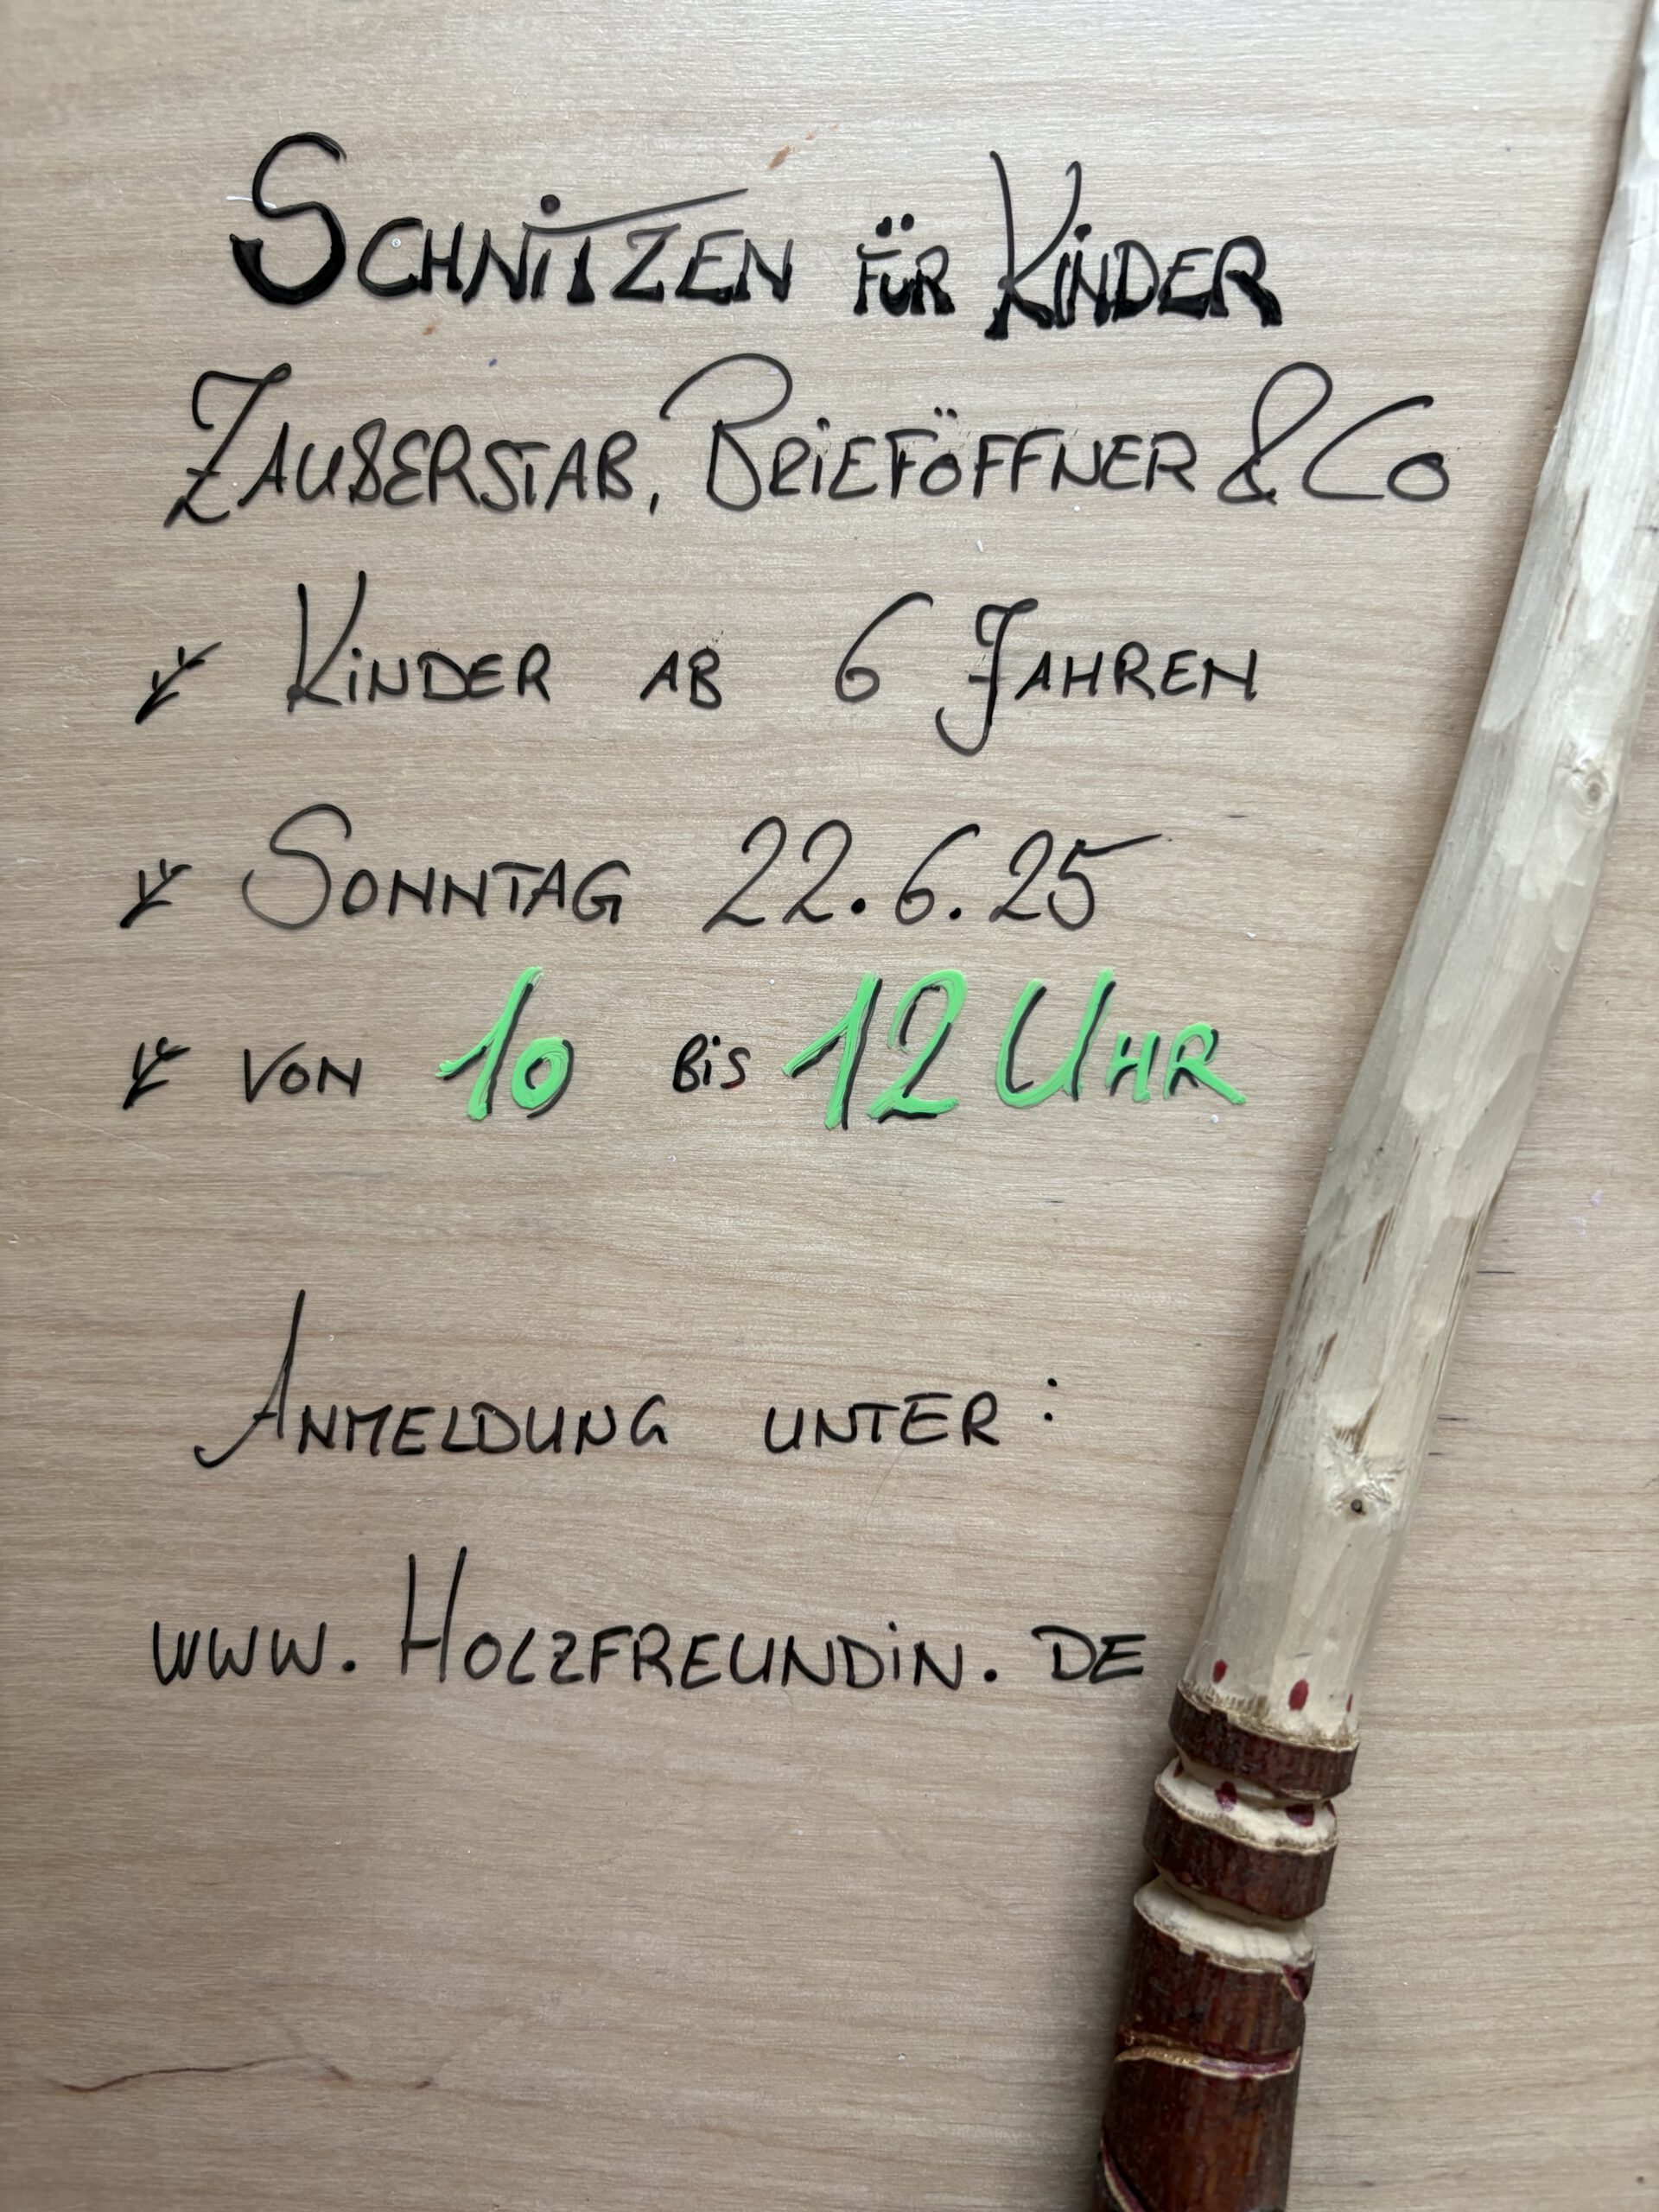 Schnitzen für Kinder
Zauberstab, Brieföffner & Co
Kinder ab 6 Jahren
Sonntag 22.6.25
von 10 bis 12 Uhr
Anmeldung unter:
www.Holzfreundin.de